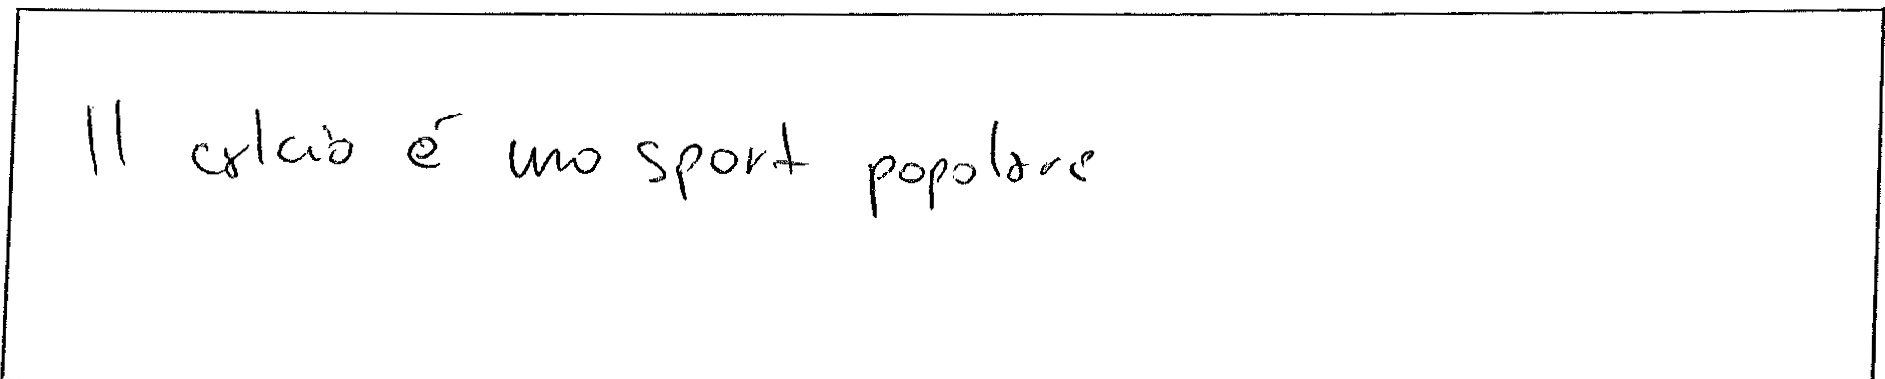 Il calcio é uno sport popolare